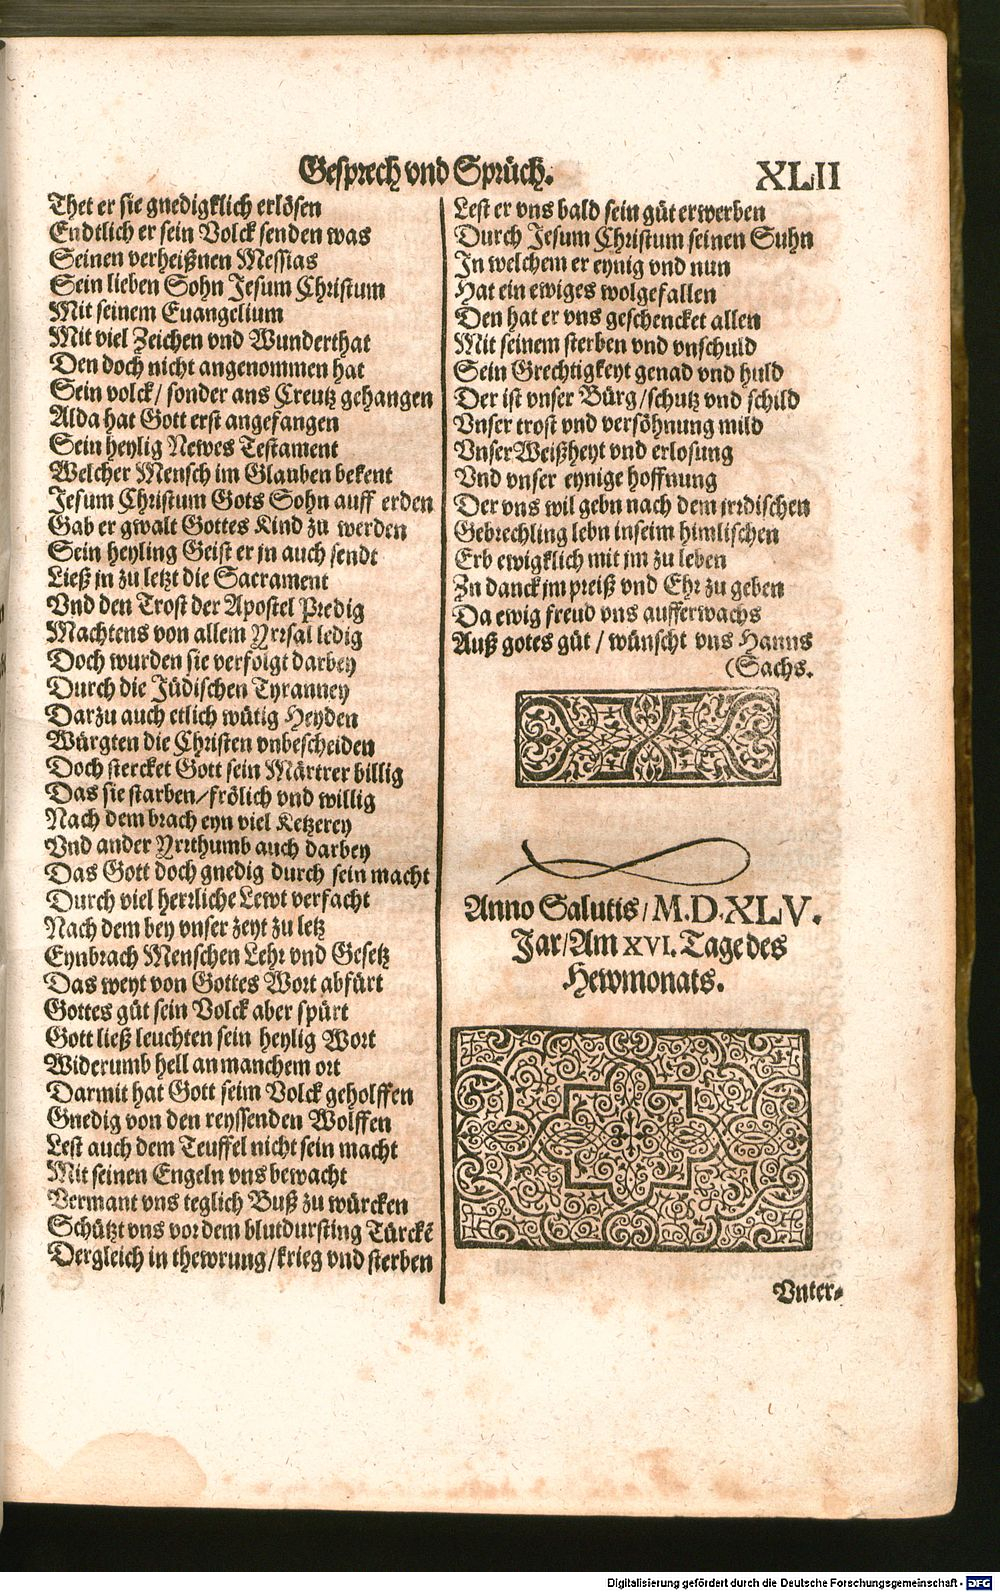 Gesprech vnd Sprüch.
XLII
Thet er sie gnedigklich erlösen
Endtlich er sein Volck senden was
Seinen verheißnen Messias
Sein lieben Sohn Jesum Christum
Mit seinem Euangelium
Mit viel Zeichen vnd Wunderthat
Den doch nicht angenommen hat
Sein volck/ sonder ans Creutz gehangen
Alda hat Gott erst angefangen
Sein heylig Newes Testament
Welcher Mensch im Glauben bekent
Jesum Christum Gots Sohn auff erden
Gab er gwalt Gottes Kind zu werden
Sein heyling Geist er jn auch sendt
Ließ jn zu letzt die Sacrament
Vnd den Trost der Apostel Predig
Machtens von allem Yrrsal ledig
Doch wurden sie verfolgt darbey
Durch die Jüdischen Tyranney
Darzu auch etlich wütig Heyden
Würgten die Christen vnbescheiden
Doch stercket Gott sein Märtrer billig
Das sie starben/frölich vnd willig
Nach dem brach eyn viel Ketzerey
Vnd ander Yrrthumb auch darbey
Das Gott doch gnedig durch sein macht
Durch viel herrliche Lewt verfacht
Nach dem bey vnser zeyt zu letz
Eynbrach Menschen Lehr vnd Gesetz
Das weyt von Gottes Wort abfürt
Gottes güt sein Volck aber spürt
Gott ließ leuchten sein heylig Wort
Widerumb hell an manchem ort
Darmit hat Gott seim Volck geholffen
Gnedig von den reyssenden Wölffen
Lest auch dem Teuffel nicht sein macht
Mit seinen Engeln vns bewacht
Vermant vns teglich Buß zu würcken
Schützt vns vor dem blutdursting Türckē
Dergleich in thewrung/krieg vnd sterben
Lest er vns bald sein güt erwerben
Durch Jesum Christum seinen Suhn
In welchem er eynig vnd nun
Hat ein ewiges wolgefallen
Den hat er vns geschencket allen
Mit seinem sterben vnd vnschuld
Sein Grechtigkeyt genad vnd huld
Der ist vnser Bürg/schutz vnd schild
Vnser trost vnd versöhnung mild
Vnser Weißheyt vnd erlosung
Vnd vnser eynige hoffnung
Der vns wil gebn nach dem jrrdischen
Gebrechling lebn in seim himlischen
Erb ewigklich mit jm zu leben
Zu danck jm preiß vnd Ehr zu geben
Da ewig freud vns aufferwachs
Auß gotes güt / wünscht vns Hanns
(Sachs.
Anno Salutis/M.D.XLV.
Jar/Am XVI. Tage des
Hewmonats.
Vnter-
Digitalisierung gefördert durch die Deutsche Forschungsgemeinschaft - DFG